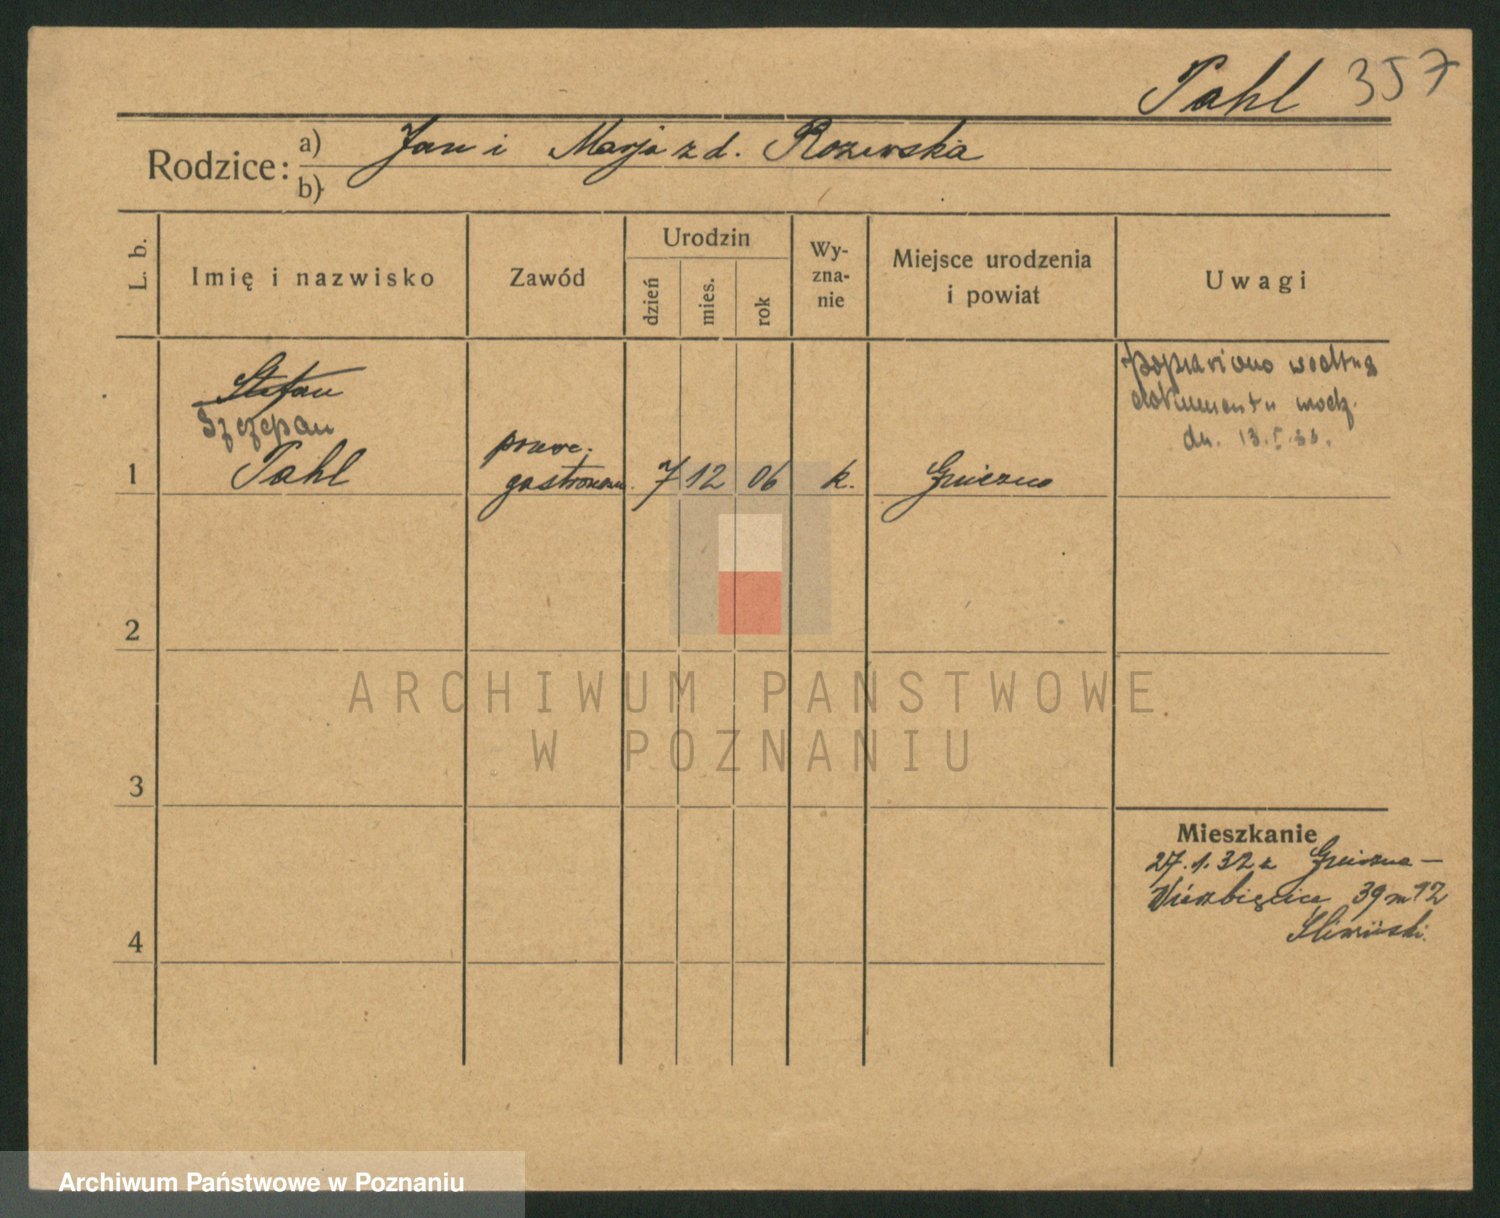 Pahl 357
Rodzice: a) Jan i Marja z d. Rozewska
b)
L. b.
Imię i nazwisko
Zawód
Urodzin
dzień
mies.
rok
Wy-
zna-
nie
Miejsce urodzenia
i powiat
Uwagi
Stefan
Szczepan
1 Pahl
pracc.
gastronom. 7 12 06 k. Gniezno
poprawiono według
dokumentu urodz.
dn. 13.I.36.
2
3
4
Mieszkanie
27.1.32 z Gniezna —
Wierzbięcice 39 m 12
ARCHIWUM PAŃSTWOWE
W POZNANIU
Archiwum Państwowe w Poznaniu